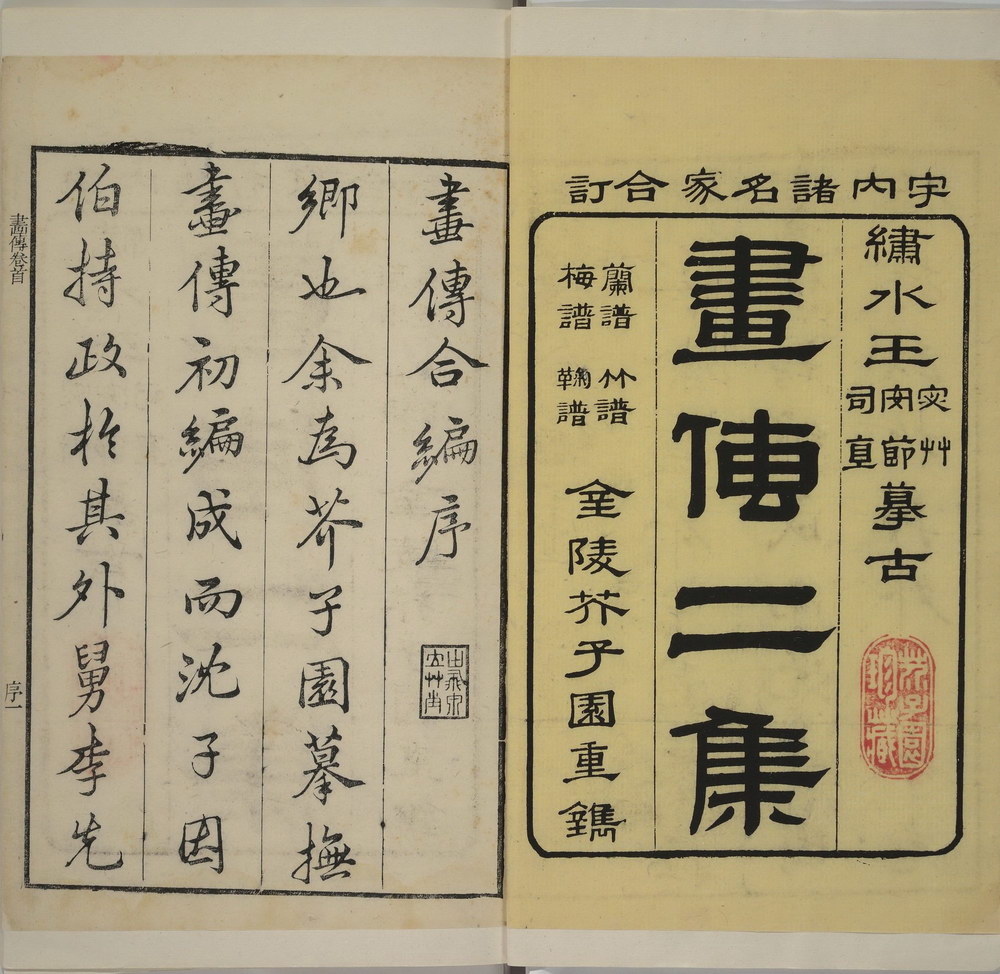 宇内諸名家合訂
繡水王宓艸安節司直摹古
畫傳二集
蘭譜 竹譜
梅譜 鞠譜
金陵芥子園重鐫
芥子園珍藏
畫傳合編序
鄉也余為芥子園摹撫
畫傳初編成而沈子因
伯持政於其外舅李先
畫傳卷首
序一